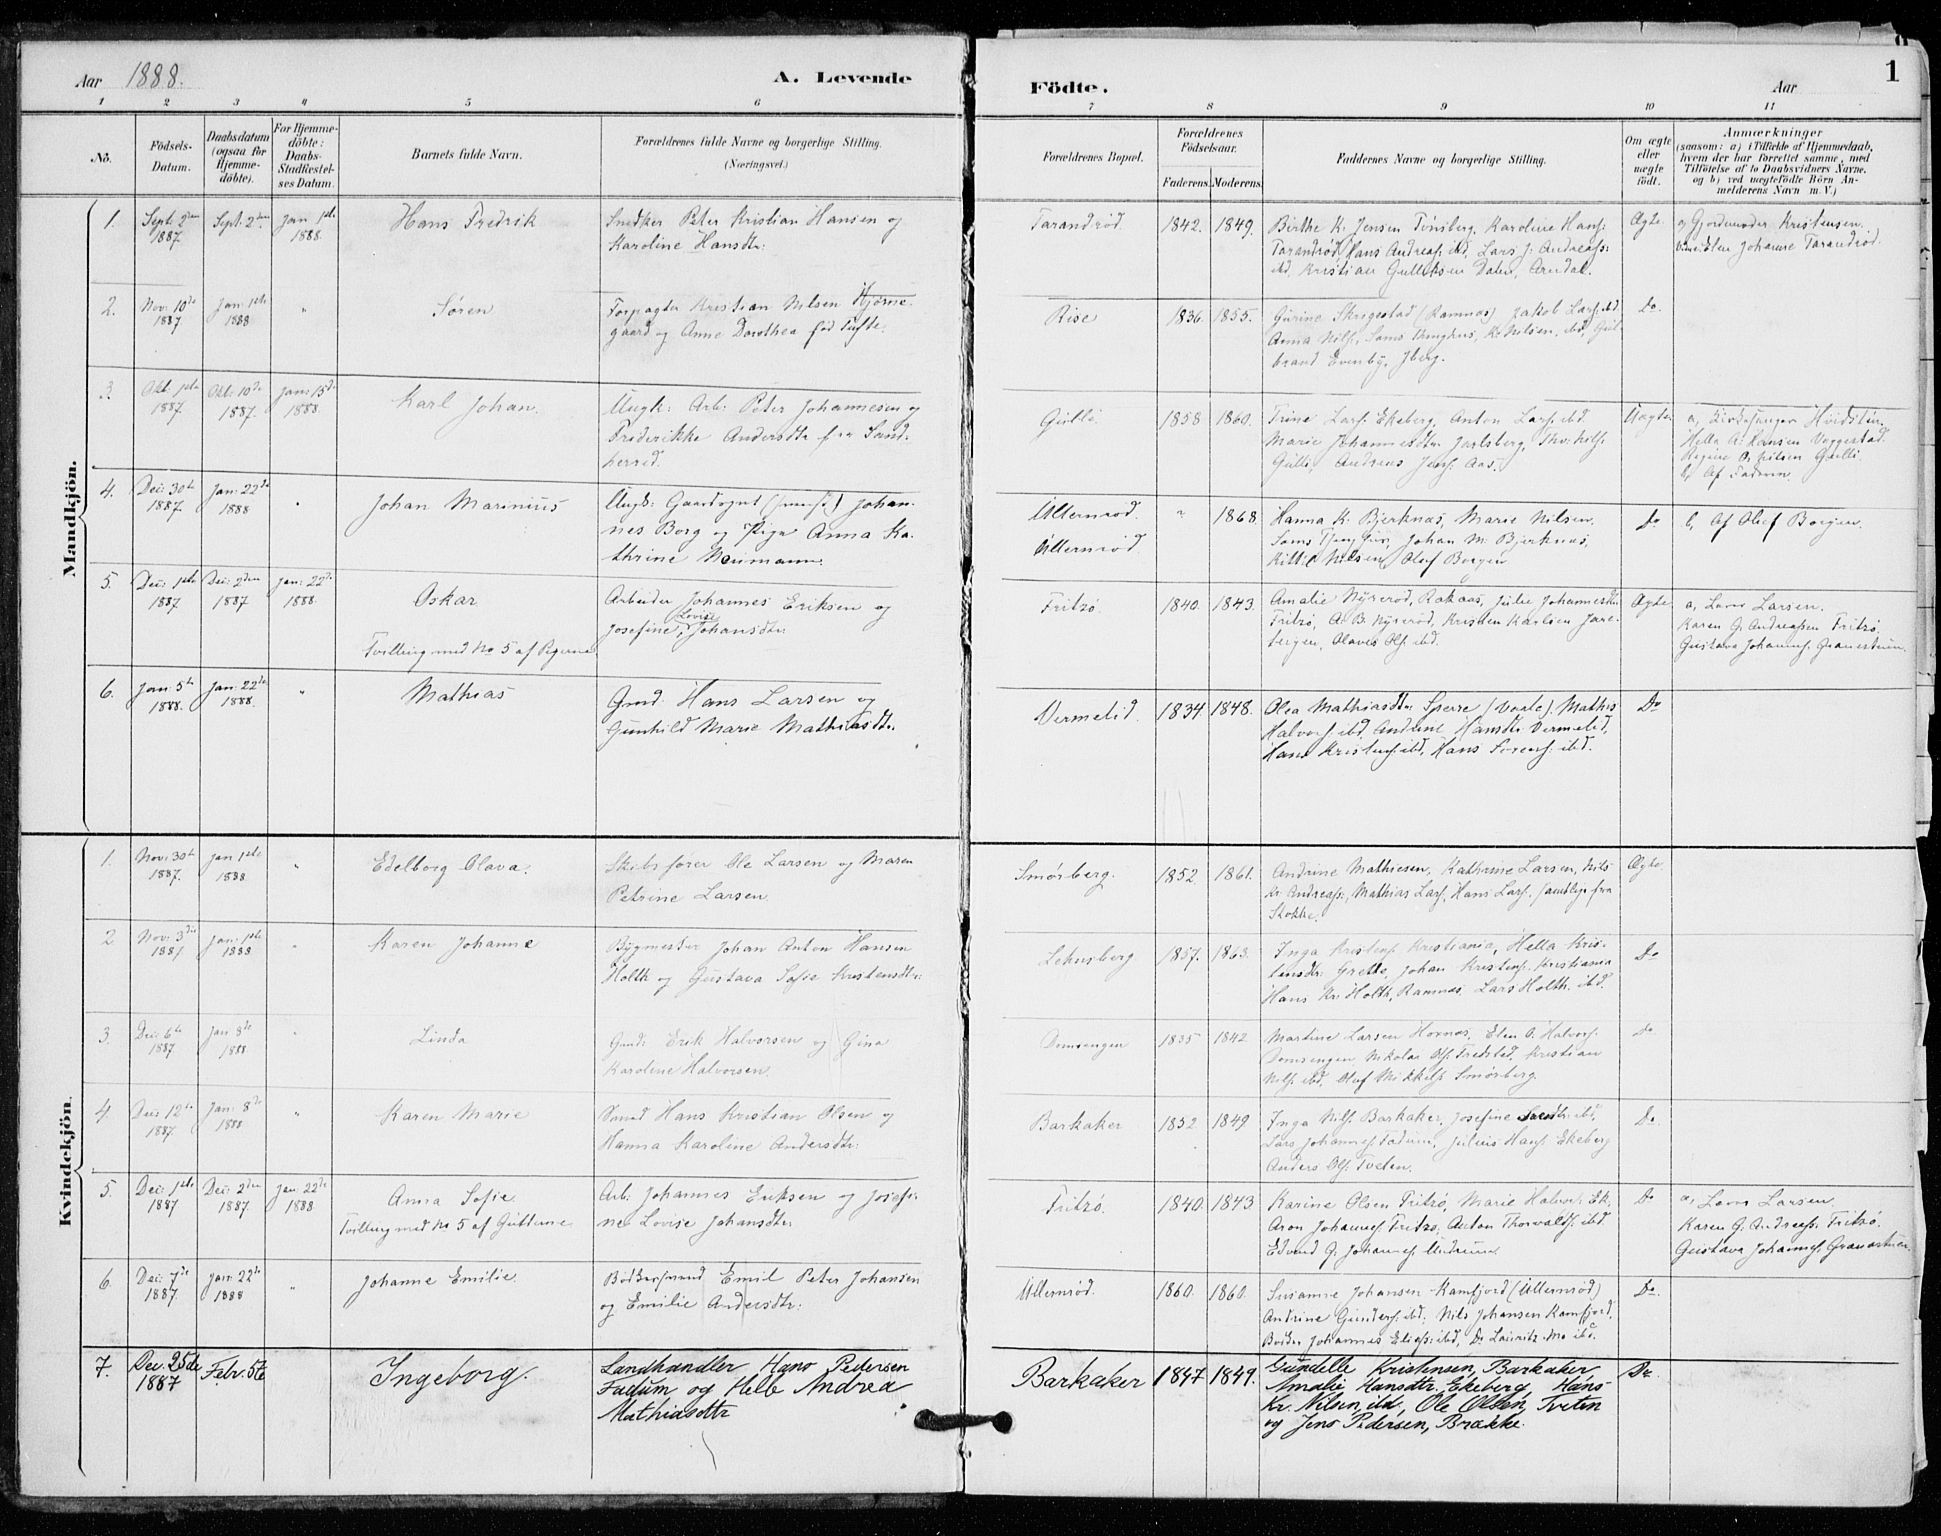 Aar 1888.
A. Levende
Födte.
Aar
1
1 2 3 4 5 6 7 8 9 10 11
No.
Födsels-
Datum.
Daabsdatum
(ogsaa for
Hjemme-
döbte).
For Hjemme-
döbte:
Daabs-
Stadfæstel-
ses Datum.
Barnets fulde Navn.
Forældrenes fulde Navne og borgerlige Stilling.
(Næringsvei.)
Forældrenes Bopæl.
Forældrenes
Födselsaar.
Faderens. Moderens.
Faddernes Navne og borgerlige Stilling.
Om ægte
eller
uægte
födt.
Anmærkninger
(saasom: a) i Tilfælde af Hjemmedaab,
hvem der har forrettet samme, med
Tilföielse af to Daabsvidners Navne,
og b) ved uægtefödte Börn An-
melderens Navn m. V.)
Mandkjön.
1. Sept: 2den 1887. Sept: 2den Jan: 1ste 1888. Hans Fredrik
Snedker Peter Kristian Hansen og
Karoline Hansdtr:
Tarandrød 1842. 1849.
Birthe K. Jensen Tønsberg, Karoline Hans:
Tarandrød, Hans Andreass: ibd, Lars J. Andreass:
ibd, Kristian Gulliksen Dalen, Arendal.
Ægte.
a, Gjordemoder Kristensen.
Johanne Tarandrød.
2. Nov: 10de 1887 Jan: 1ste 1888 " Søren
Forpagter Kristian Nilsen Hjørne-
gaard og Anne Dorothea fød Tufte.
Rise 1836. 1855.
Gurine Skregestad (Ramnæs) Jakob Lars: ibd
Anna Nils:, K. Nilsen, ibd, Gul-
brand Evenby, Iberg.
Do.
3. Okt: 1ste 1887. Okt: 10de 1887. Jan: 15de 1888. Karl Johan.
Ungk: Arb: Peter Johannesen og
Friderikke Andersdtr fra Sand-
herred.
Gulli. 1858 1860.
Trine Lars: Ekeberg, Anton Lars: ibd
Marie Johannesdtr. Jarlsberg,
Gulli, Andreas Jens: Aas.
Uægte.
a, Kirkesanger Hvidsten
Hella A. Hansen Vaggestad.
Regine O. Nilsen Gulli.
b, Af Faderen.
4. Dec: 30te 1887. Jan: 22de 1888 " Johan Marinius
Ungk: Gaardsgut Johan-
nes Borg og Pige Anna Ka-
thrine Neumann.
Ullernrød.
Ullernrød.
" 1868.
Hanna K. Bjerknæs, Marie Nilsen,
Johan M. Bjerknæs,
Nilsen, Olof Borgen
Do
b, Af Olof Borgen.
5. Dec: 1ste 1887 Dec: 2den 1887 Jan: 22de 1888. Oskar
Tvilling med No 5 af Pigerne
Arbeider Johannes Eriksen og
Josefine Lovise Johansdtr:
Fritzø. 1840. 1843.
Amalie Nyrerød, Rakaas, Julie Johannesdtr
Fritzø, A. B. Nyrerød, Kristen Karlsen Jare-
teigen, Olaves Ols: ibd.
Ægte.
a, Lars Larsen.
Karen G. Andreassen Fritzø,
Gustava Johannes:
6. Jan: 5te 1888. Jan: 22de 1888. " Mathias
Gmd. Hans Larsen og
Gunhild Marie Mathiasdtr.
Vermelid. 1834. 1848.
Olea Mathiasdtr: Sperre (Vaale). Mathis
Halvors: ibd, Andrine Hansdtr. Vermelid,
Hans Kristens: ibd, Hans Sørens: ibd.
Do
Kvindekjön.
1. Nov: 30te 1887. Jan 1ste 1888. " Edelborg Olava.
Skibsfører Ole Larsen og Maren
Petrine Larsen
Smørberg. 1852 1861.
Andrine Mathiesen, Kathrine Larsen, Nils
Kr. Andreass:, Mathias Lars:, Hans Lars: samtlige fra
Stokke.
Ægte.
2 Nov: 3die 1887. Jan: 1ste 1888 " Karen Johanne
Bygmester Johan Anton Hansen
Holth og Gustava Sofie Kristensdtr:
Lensberg 1857. 1863.
Inga Kristens: Kristiania, Hella Kris-
tensdtr: Grette, Johan Kristens: Kristiania
Hans Kr. Holth, Ramnæs, Lars Holth, ibd.
Do
3. Dec: 6te 1887. Jan: 8de 1888. " Linda
Gmd: Erik Halvorsen og Gina
Karoline Halvorsen.
Domsengen 1835 1842
Martine Larsen Hornæs, Elen O. Halvors:
Domsengen Nikolai Ols: Fredstad, Kristian
Nils: ibd, Olof Mikkels: Smørberg.
Do
4. Dec: 12te 1887. Jan: 8de 1888 " Karen Marie
Smed Hans Kristian Olsen og
Hanna Karoline Andersdtr:
Barkaker 1852 1849
Inga Nils: Barkaker, Josefine ibd,
Lars Johannes: Fadum, Julius Hans: Ekeberg
Anders Ols: Tveten.
Do.
5. Dec: 1ste 1887 Dec: 2den 1887. Jan: 22de 1888 Anna Sofie
Tvilling med No 5 af Gutterne
Arb: Johannes Eriksen og Josefi-
ne Lovise Johansdtr:
Fritzø. 1840. 1843
Karine Olsen Fritzø, Marie Halvors: Ek,
Aron Johannes: Fritzø, Anton Thorvalds: ibd.
Edvard G. Johannes: Undrum
Do
a, Lars Larsen
Karen G. Andreass: Fritzø.
Gustava Johannes:
6. Dec: 7de 1887 Jan: 22de 1888 " Johanne Emilie.
Bødkersvend Emil Peter Johansen
og Emilie Andersdtr:
Ullernrød. 1860. 1860.
Susanne Johansen Kamfjord (Ullernrød)
Andrine Gunders: ibd, Nils Johansen Kamfjord,
Bødker Johannes Elies: ibd, Do Lauritz Mo ibd.
Do.
7. Dec. 25de 1887 Febr. 5te Ingeborg.
Landhandler Hans Pedersen
Fadum og Helle Andrea
Mathiasdtr
Barkaker 1847 1849.
Gundelle Kristensen, Barkaker
Amalie Hansdtr. Ekeberg, Hans
Kr. Nilsen, ibd, Ole Olsen, Tveten
og Jens Pedersen, Brække.
Do.